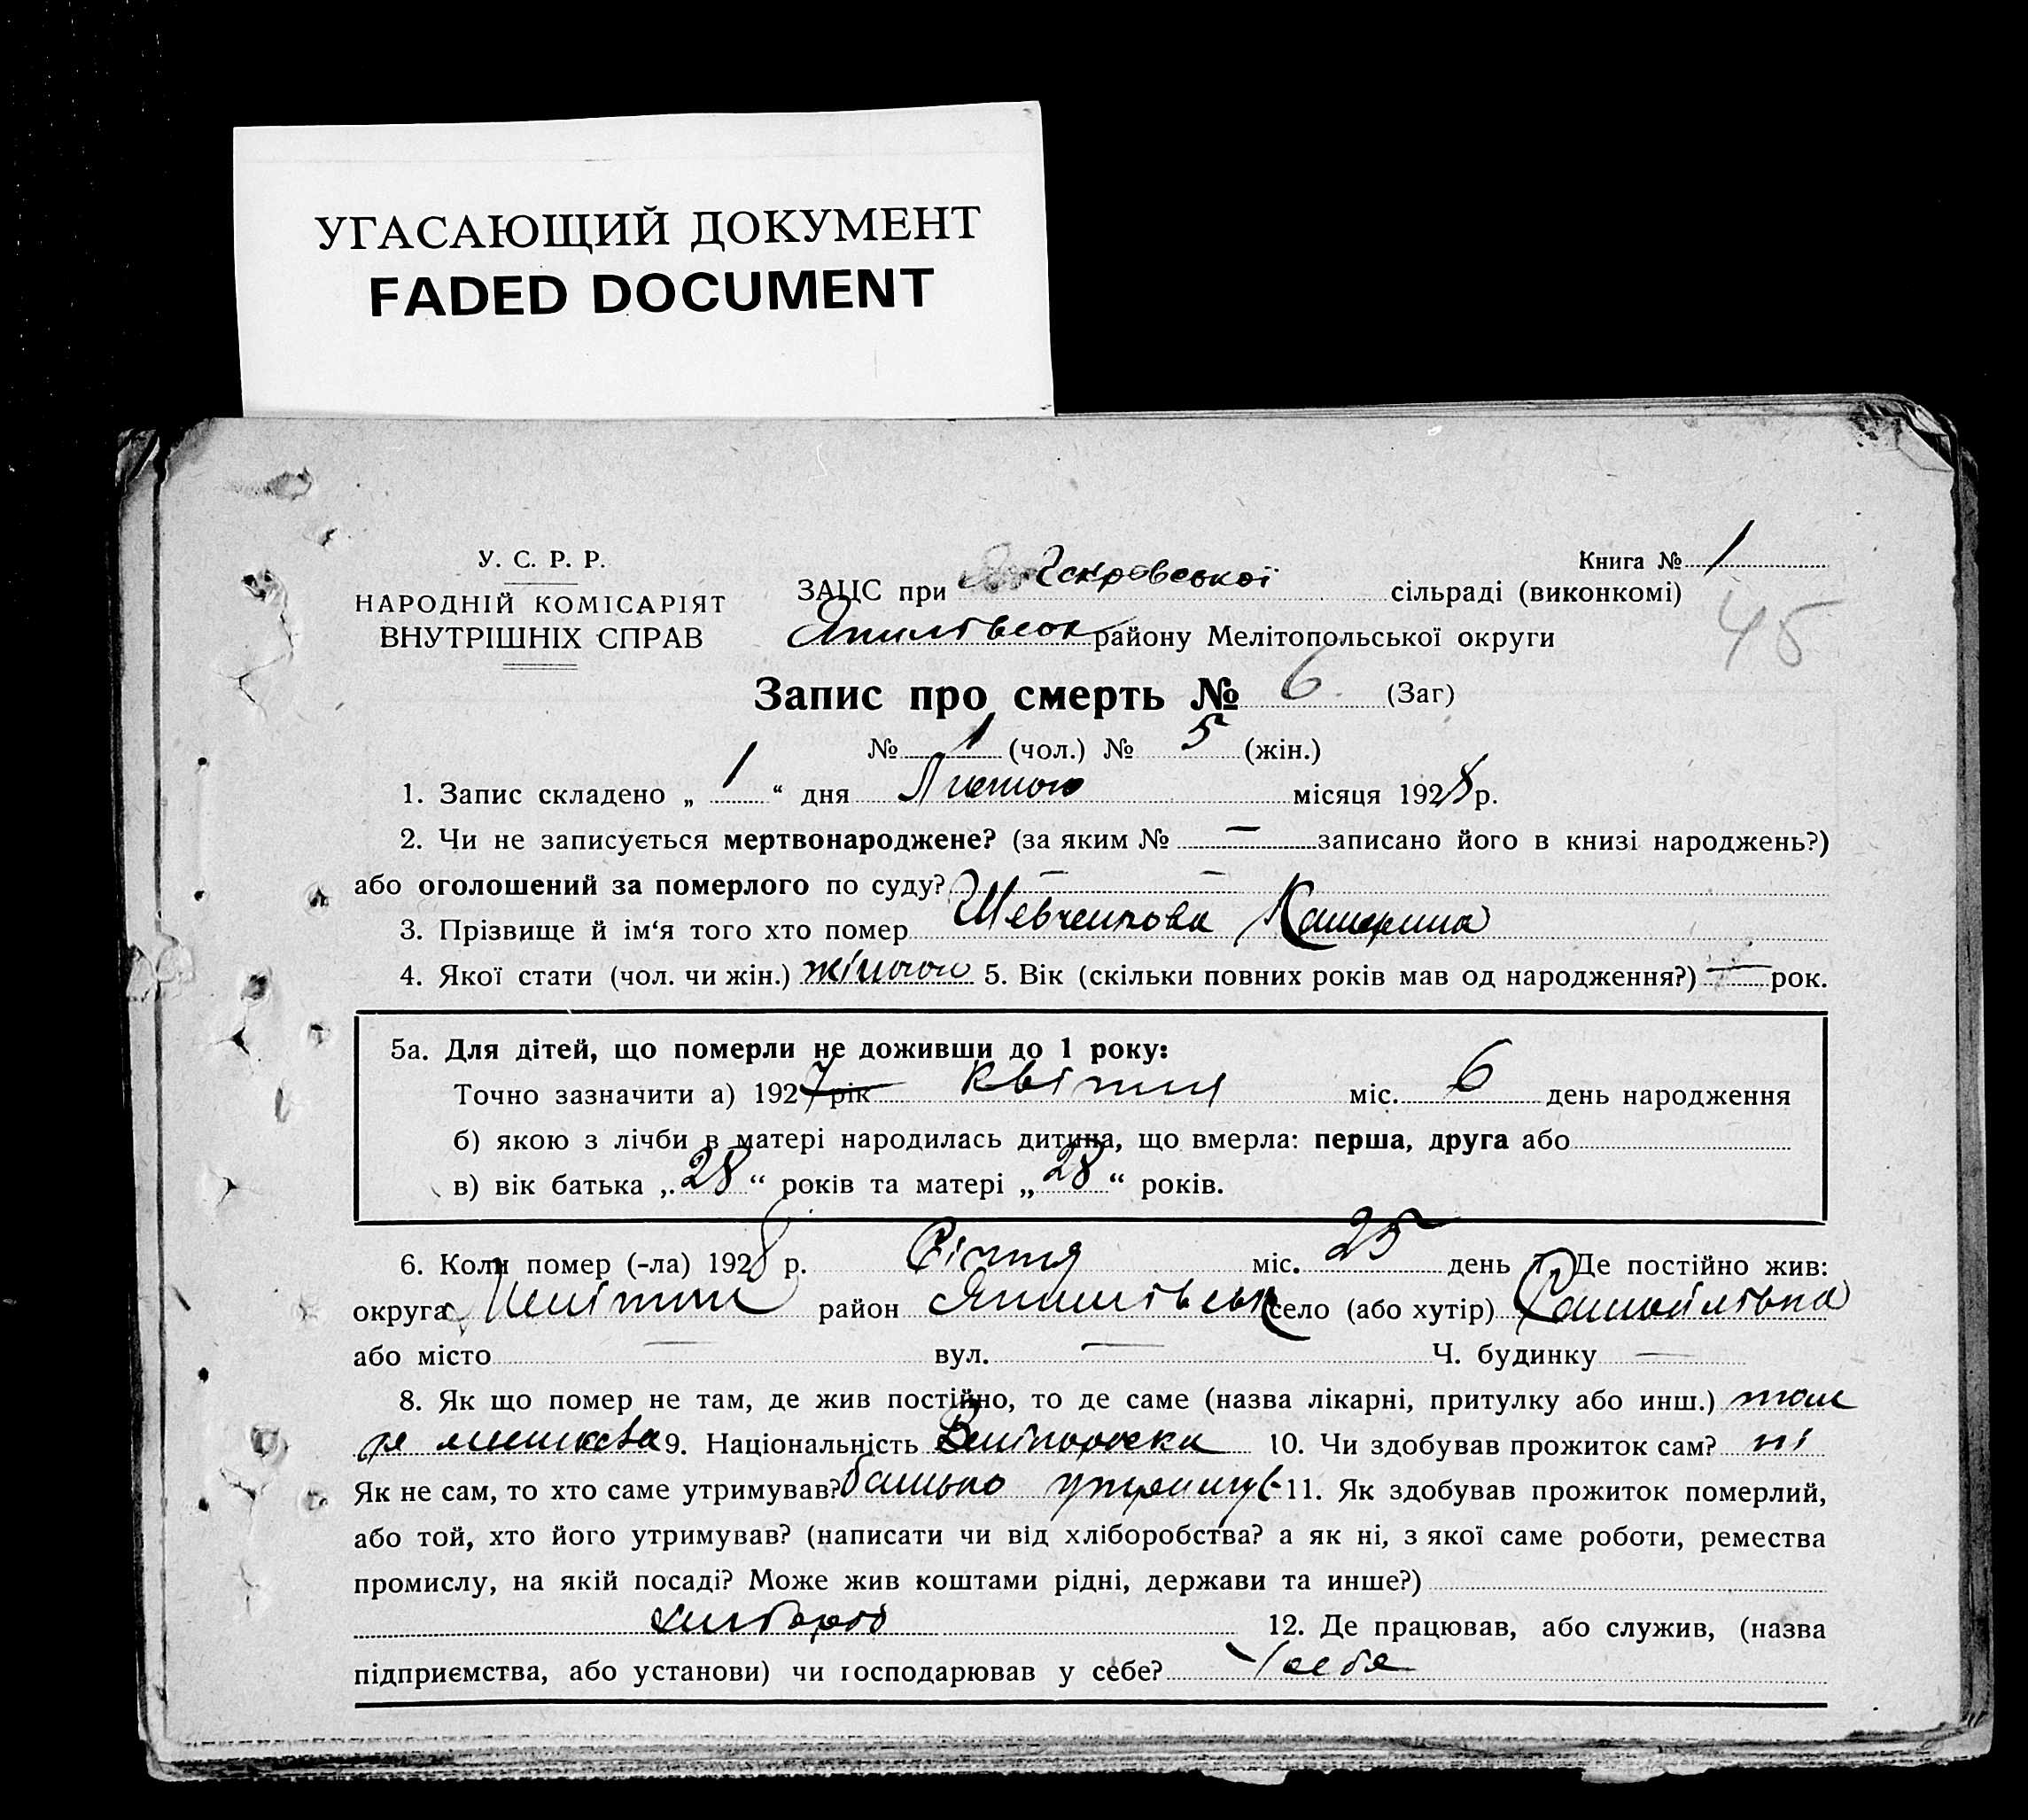 УГАСАЮЩИЙ ДОКУМЕНТ
FADED DOCUMENT
У. С. Р. Р.
НАРОДНІЙ КОМІСАРІЯТ
ВНУТРІШНІХ СПРАВ
Книга № 1
ЗАЦС при сільраді (виконкомі)
району Мелітопольської округи
45
Запис про смерть № 6 (Заг)
№ 1 (чол.) № 5 (жін.)
1. Запис складено „ 1 “ дня Лютого місяця 1928 р.
2. Чи не записується мертвонароджене? (за яким № — записано його в книзі народжень?)
або оголошений за померлого по суду? — —
3. Прізвище й ім‘я того хто помер Шевченкова Катерина
4. Якої стати (чол. чи жін.) жіночої 5. Вік (скільки повних років мав од народження?) — рок.
5а. Для дітей, що померли не доживши до 1 року:
Точно зазначити а) 1927 рік квітня міс. 6 день народження
б) якою з лічби в матері народилась дитина, що вмерла: перша, друга або
в) вік батька „ 28 “ років та матері „ 28 “ років.
6. Коли помер (-ла) 1928 р. Січня міс. 25 день 7. Де постійно жив:
округа Мелітоп район село (або хутір) Самойлівка
або місто — вул. — Ч. будинку —
8. Як що помер не там, де жив постійно, то де саме (назва лікарні, притулку або инш.) там
де мешкава 9. Національність Велікороска 10. Чи здобував прожиток сам? ні
Як не сам, то хто саме утримував? батько утримув 11. Як здобував прожиток померлий,
або той, хто його утримував? (написати чи від хліборобства? а як ні, з якої саме роботи, ремества
промислу, на якій посаді? Може жив коштами рідні, держави та инше?)
хлібороб 12. Де працював, або служив, (назва
підприємства, або установи) чи господарював у себе? У себя